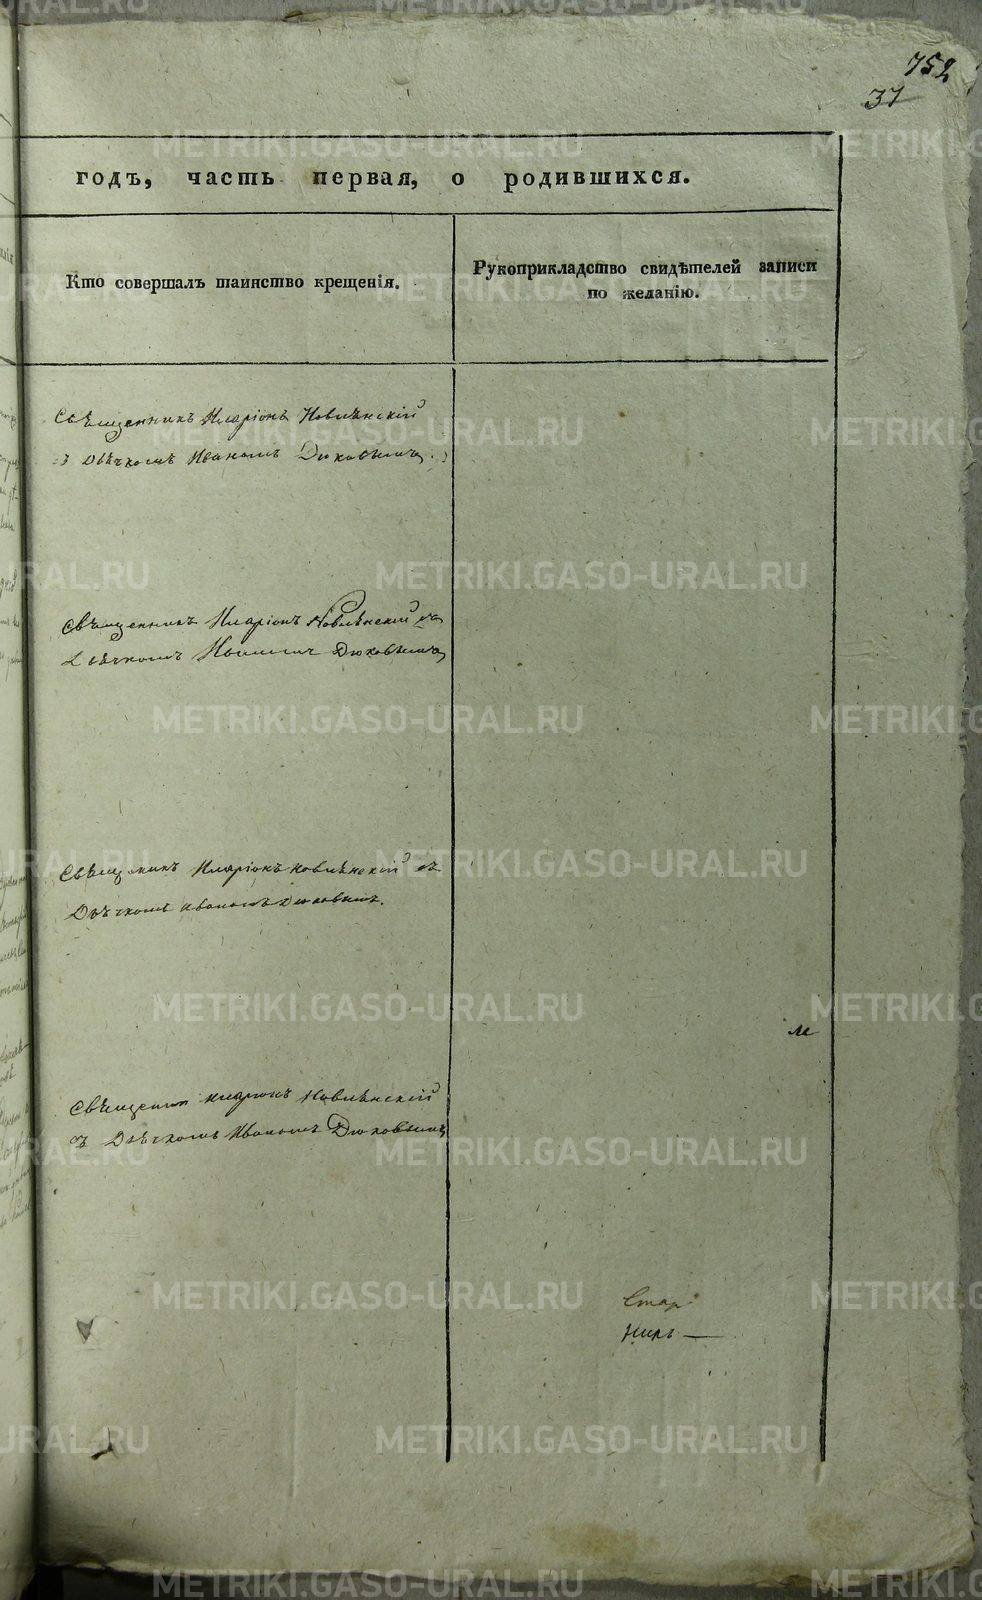 752
37
годъ, часть первая, о родившихся.
Кто совершалъ таинство крещенія.
Рукоприкладство свидѣтелей записи
по желанію.
Священникъ Иларіонъ Новлянскій
съ Дьячкомъ Иваномъ Дюковымъ
Священникъ Иларіонъ Новлянскій съ
Дьячкомъ Иваномъ Дюковымъ
Священникъ Иларіонъ Новлянскій съ
Дьячкомъ Иваномъ Дюковымъ.
ле
Священникъ Иларіонъ Новлянскій
съ Дьячкомъ Иваномъ Дюковымъ
METRIKI.GASO-URAL.RU